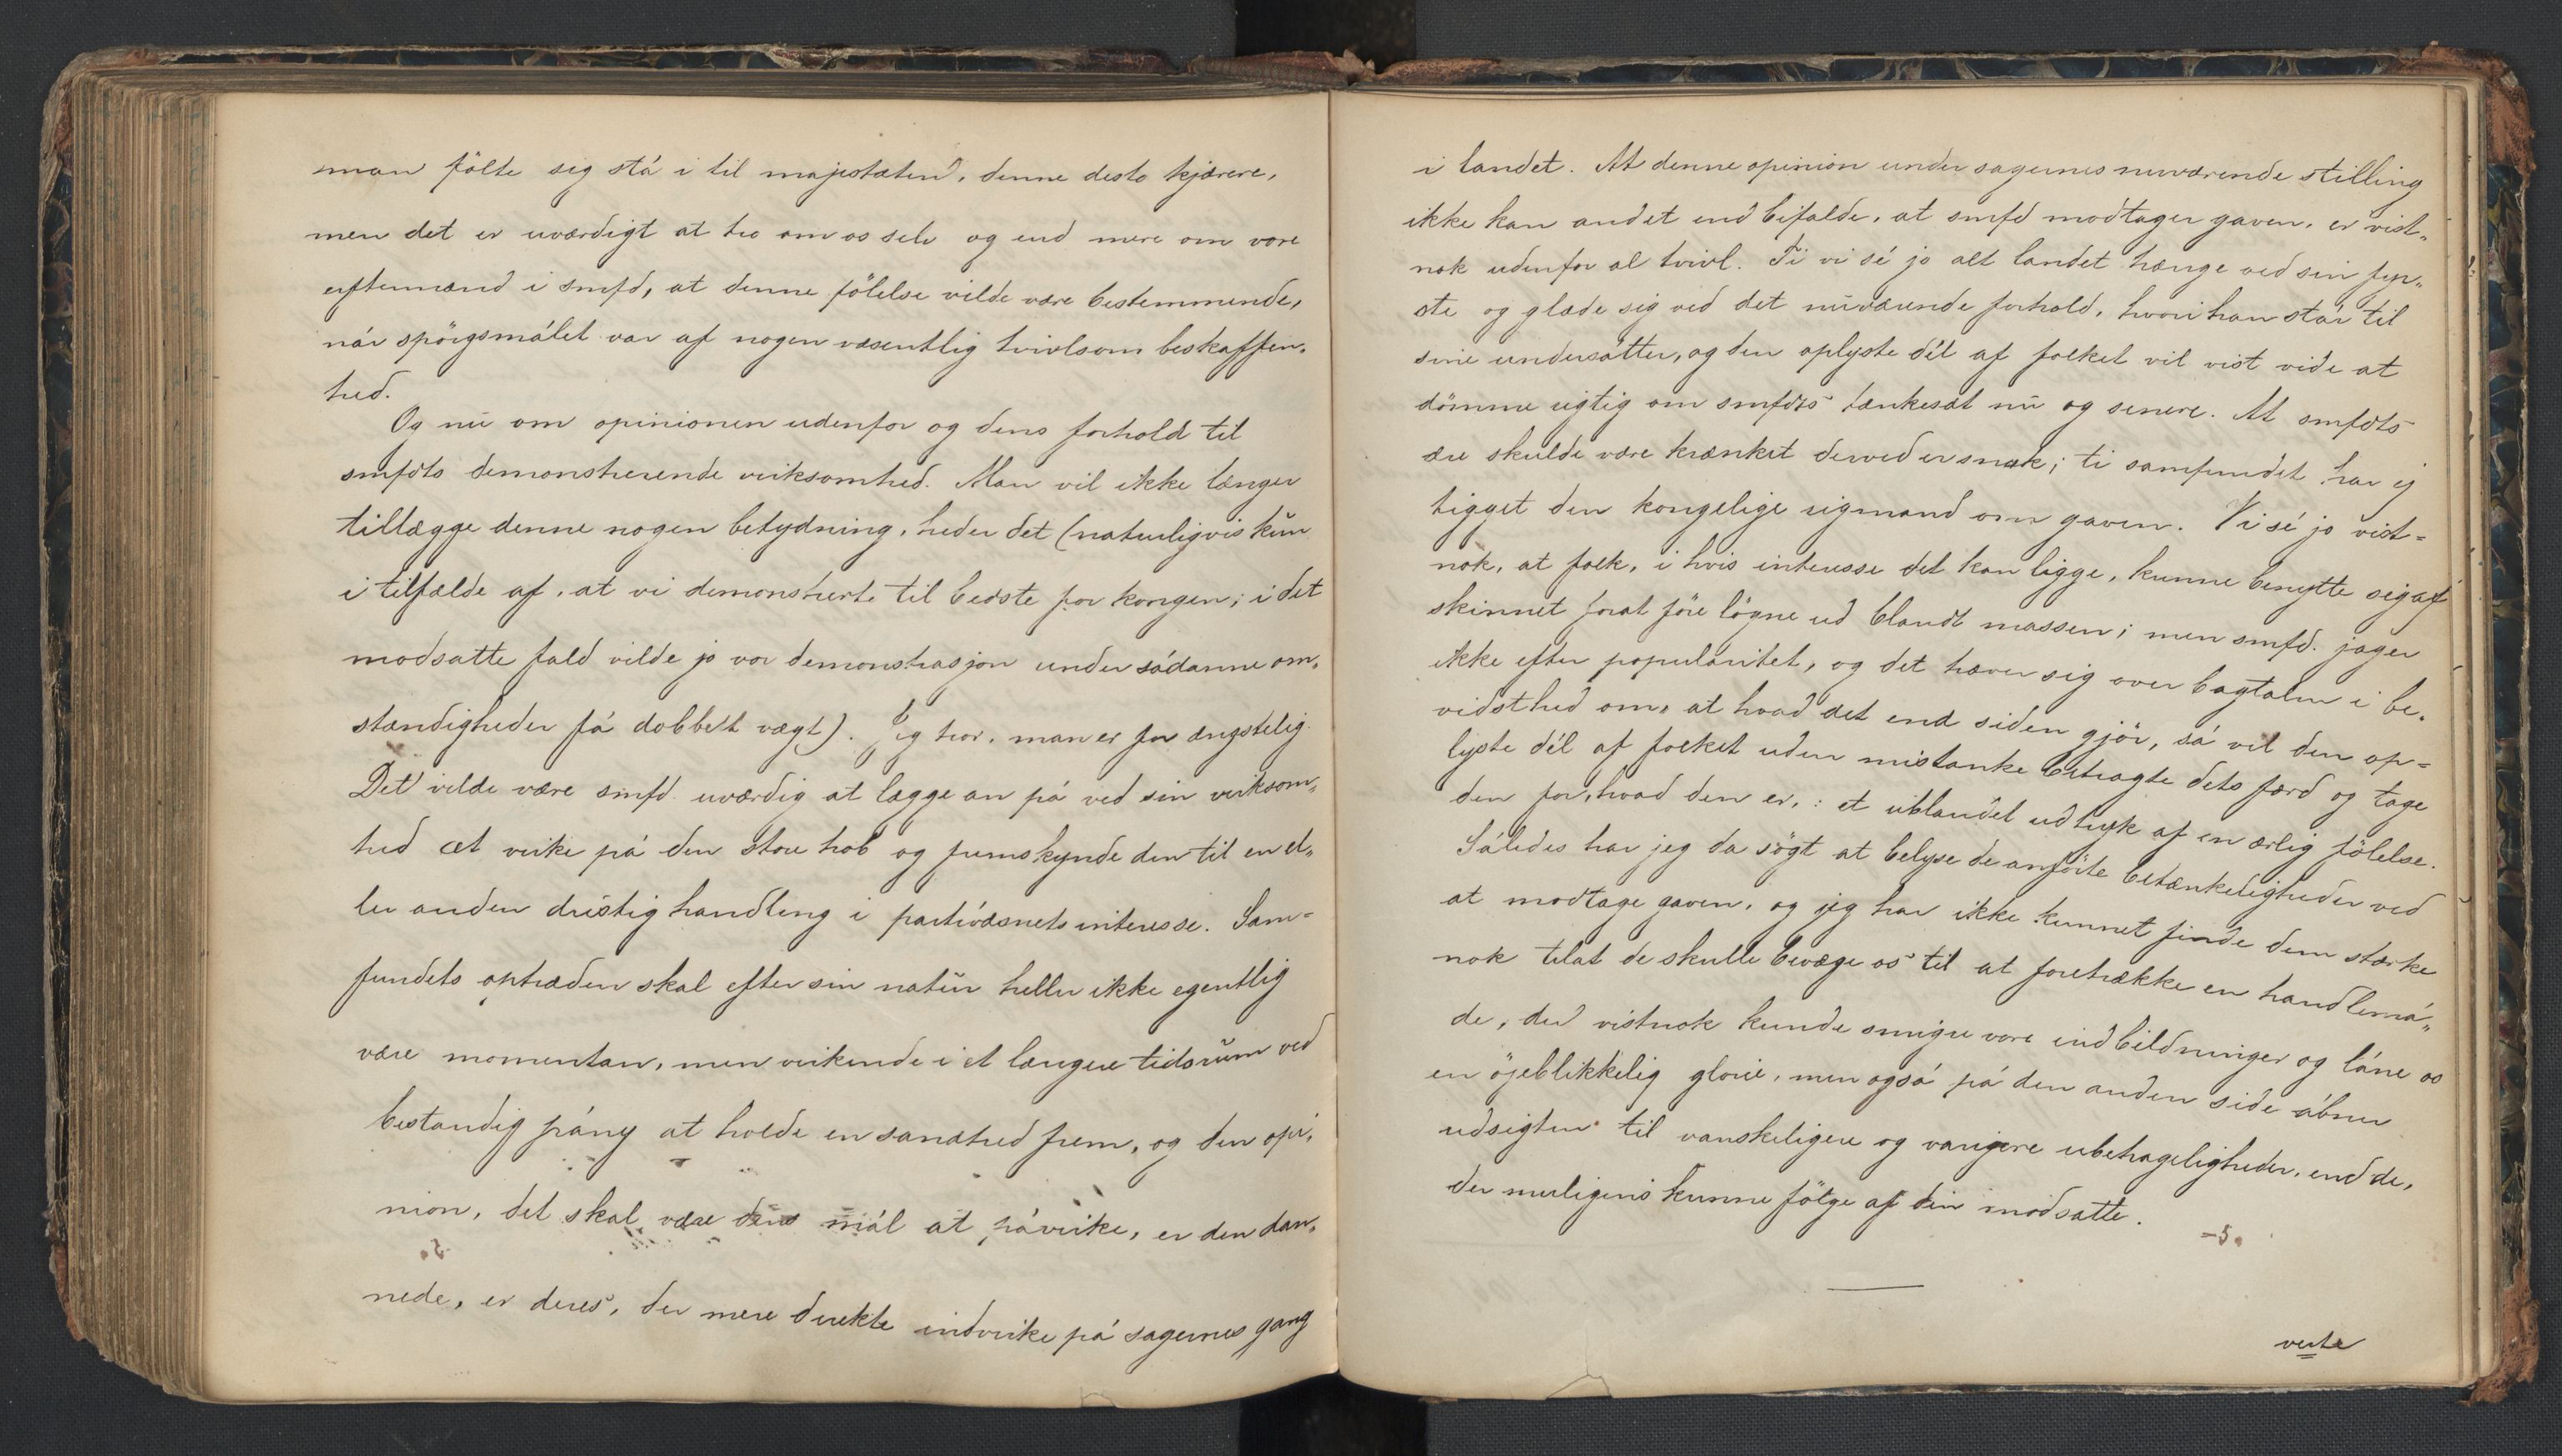 man fölte sig stå i til majestæten, denne desto kjærere,
men det er uværdigt at tro om os selv og end mere om vore
eftermænd i smfd, at denne fölelse vilde være bestemmende,
når spörgsmålet var af nogen væsentlig tvivlsom beskaffen-
hed.
Og nu om opinionen udenfor og dens forhold til
smfdts demonstrerende virksomhed. Man vil ikke længer
tillægge denne nogen betydning, heder det (naturligvis kun
i tilfælde af, at vi demonstrerte til bedste for kongen; i det
modsatte fald vilde jo vor demonstrasjon under sådanne om-
stændigheder få dobbelt vægt). Jeg tror, man er for ængstelig.
Det vilde være smfd. uværdig at lægge an på ved sin virksom-
hed at virke på den store hob og fremskynde den til en el-
ler anden dristig handling i partivæsnets interesse. Sam-
fundets optræden skal efter sin natur heller ikke egentlig
være momentan, men virkende i et længere tidsrum ved
bestandig påny at holde en sandhed frem, og den opi-
nion, det skal være dens mål at påvirke, er den dan-
nede, er deres, der mere direkte indvirke på sagernes gang
i landet. At denne opinion under sagernes nuværende stilling
ikke kan andet end bifalde, at smfd modtager gaven, er vist-
nok udenfor al tvivl. Ti vi sé jo alt landet hænge ved sin fyr-
ste og glæde sig ved det nuværende forhold, hvori han står til
sine undersåtter, og den oplyste dél af folket vil vist vide at
dömme rigtig om smfdts tænkesæt nu og senere. At smfdts
ære skulde være krænket derved er snak; ti samfundet har ej
tigget den kongelige rigmand om gaven. Vi sé jo vist-
nok, at folk, i hvis interesse det kan ligge, kunne benytte sig af
skinnet forat före lögne ud blandt massen; men smfd. jager
ikke efter popularitet, og det hæver sig over bagtalen i be-
vidsthed om, at hvad det end siden gjör, så vil den op-
lyste dél af folket uden mistanke betragte dets færd og tage
den for, hvad den er, : et ublandet udtryk af en ærlig fölelse.
Således har jeg da sögt at belyse de anförte betænkeligheder ved
at modtage gaven, og jeg har ikke kunnet finde dem stærke
nok tilat de skulle bevæge os til at foretrække en handlemå-
de, der vistnok kunde smigre vore indbildninger og låne os
en öjeblikkelig glorie, men også på den anden side åbner
udsigten til vanskeligere og varigere ubehageligheder, end de,
der muligens kunne fölge af den modsatte.
-5.
verte